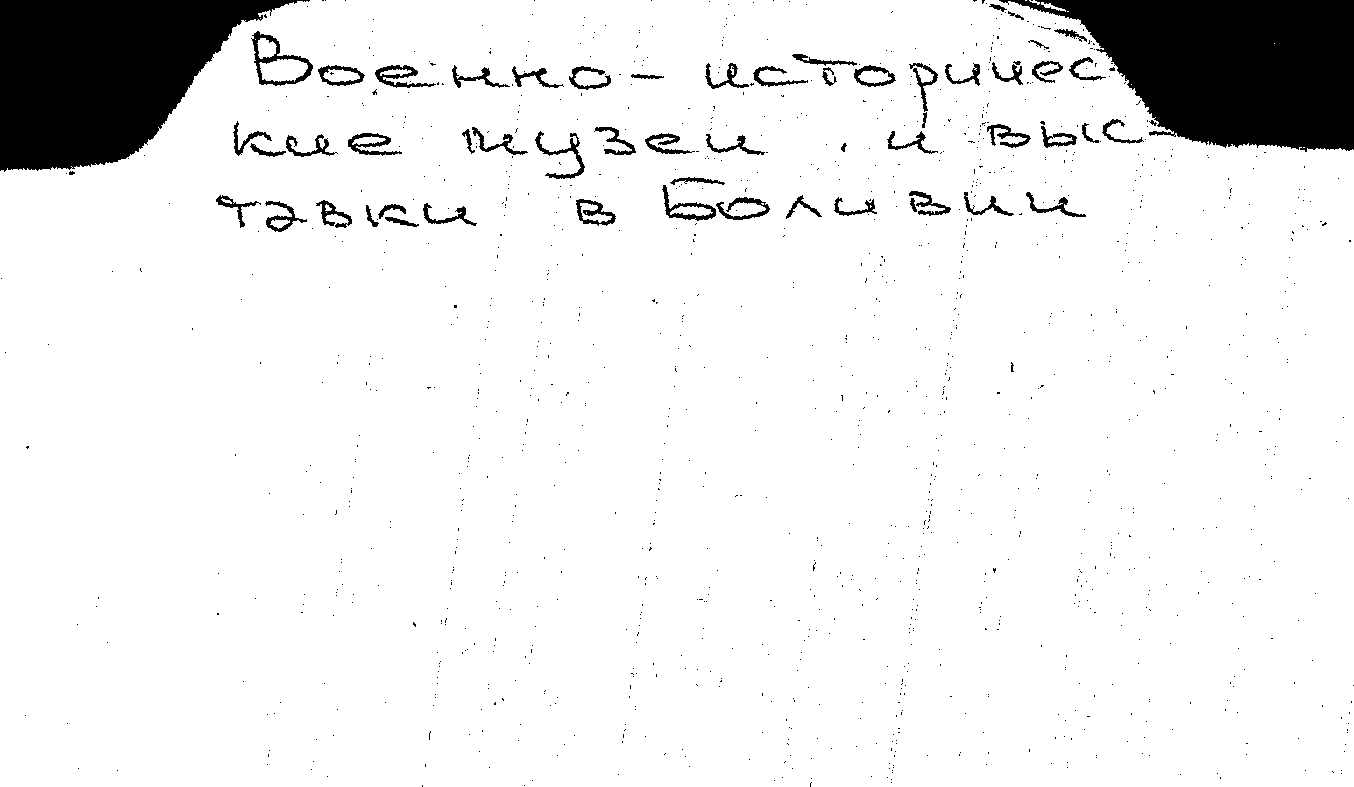 Военно-историчес
кие музеи . и выс-
тавки в Боливии